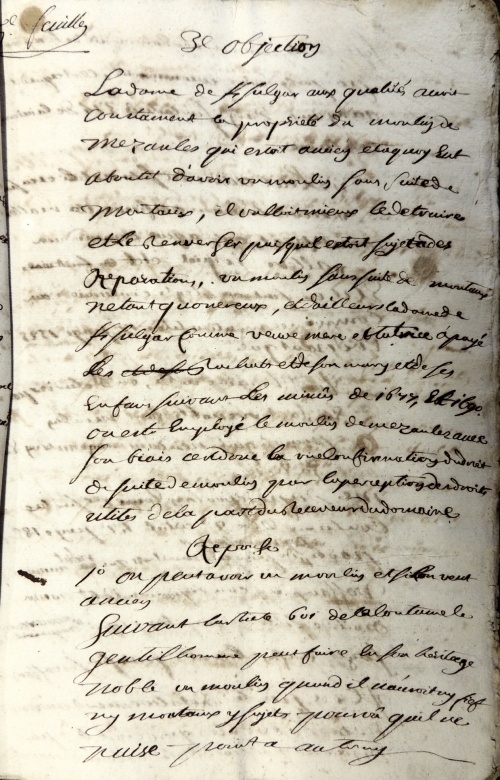 feuillet
3e objection
La dame de St Sulyar aux qualités avoit
constament la propriété du moulin de
Mezaules qui estoit ancien et a quoy eut
aboutit d'avoir un moulin sans suite de
moutaux, il valloit mieux le detruire
et le renverser puisqu'il estoit sujet a des
Reparations, un moulin sans suite de moutaux
n'etant qu'onereux, et d'ailleurs la dame de
St Sulyar comme veuve mere et tutrice a payé
les rachats et de son mary et de ses
Enfans suivant les minûs de 1677, Et 1690
ou est Employé le moulin de mezaules avec
son biais c'est donc la une confirmation du droit
de suite de moulin pour la perception des droits
utiles de la part du Receveur du domaine
Reponse
1o on peut avoir un moulin et si l'on veut
ancien
Suivant l'article 61 de la Coutume le
gentilhomme peut faire en son héritage
noble un moulin quand il n'auroit ny fief
ny moutaux sujets pourvû qu'il ne
nuise point a autruy